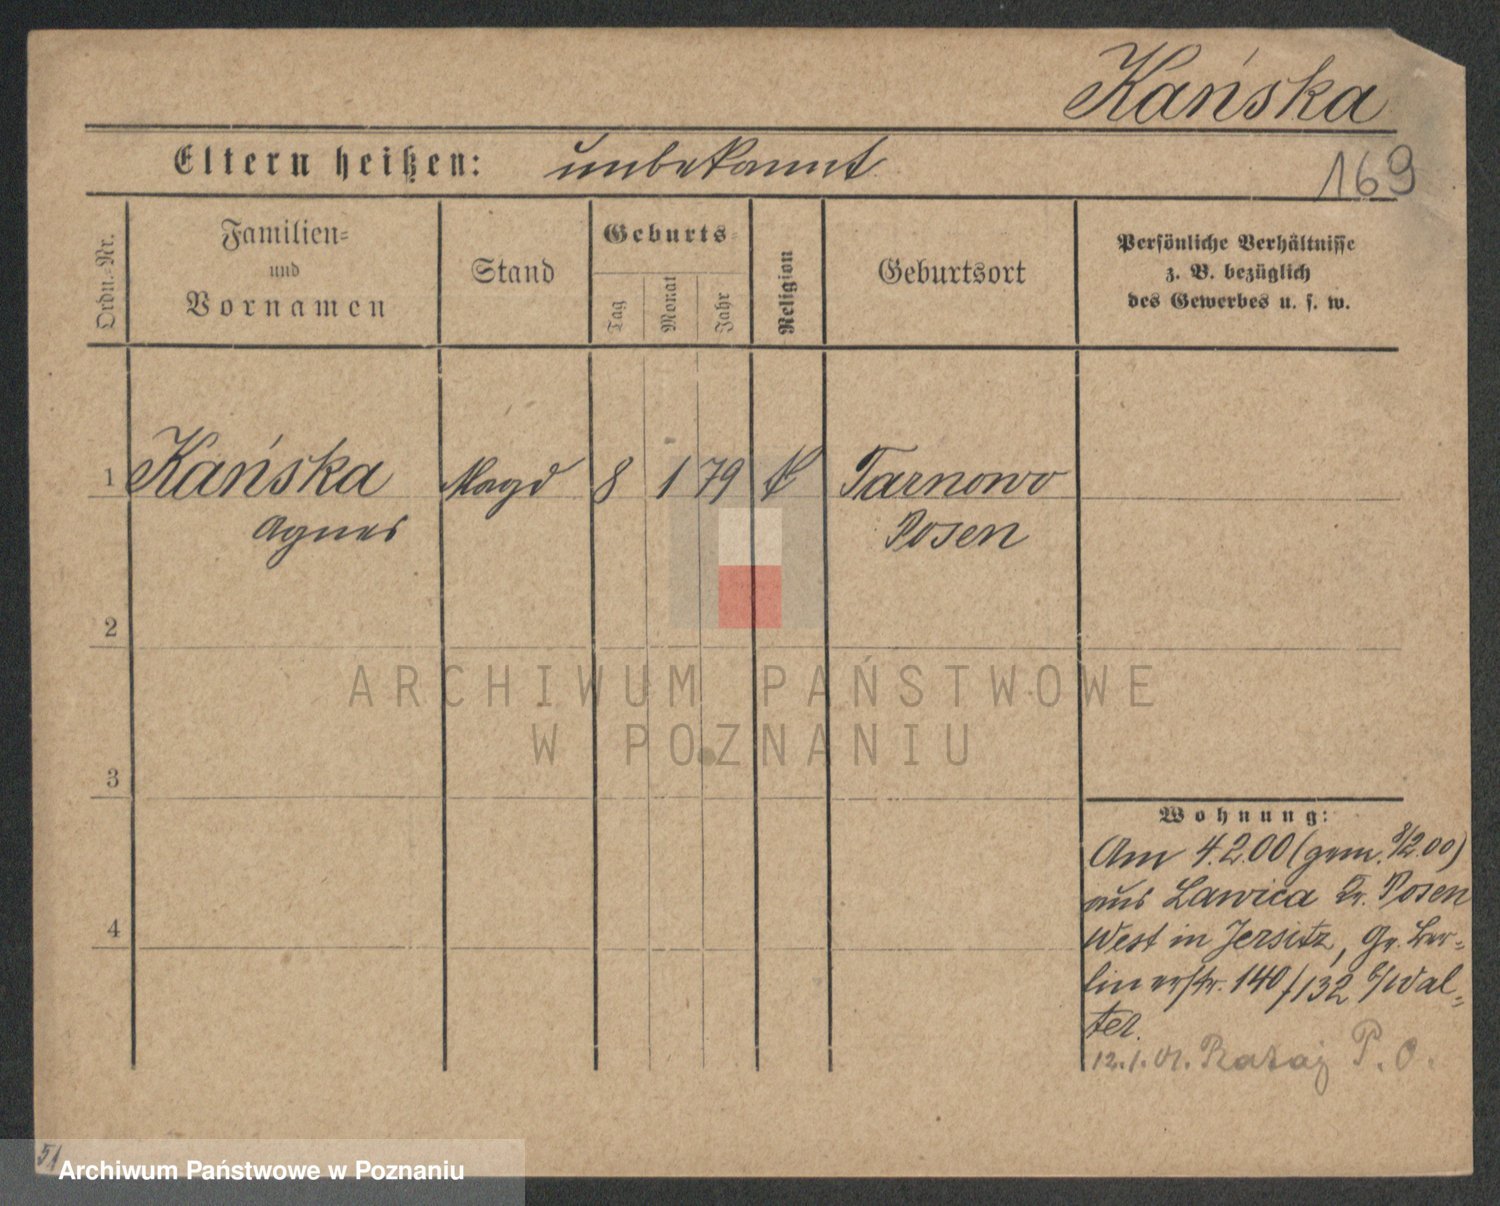 Kańska
Eltern heißen: unbekannt
169
Ordn.-Nr.
Familien-
und
Vornamen
Stand
Geburts-
Tag
Monat
Jahr
Religion
Geburtsort
Persönliche Verhältnisse
z. B. bezüglich
des Gewerbes u. s. w.
1 Kańska Magd 8 1 79 K Tarnowo
Agnes Posen
2
ARCHIWUM PAŃSTWOWE
W POZNANIU
3
4
Wohnung:
Am 4.2.00 (gem. 8/2.00)
aus Lawica Kr. Posen
West in Jersitz, Gr. Ber-
linerstr. 140/132 b/Wal-
ter.
12.1.01. P. O.
51
Archiwum Państwowe w Poznaniu